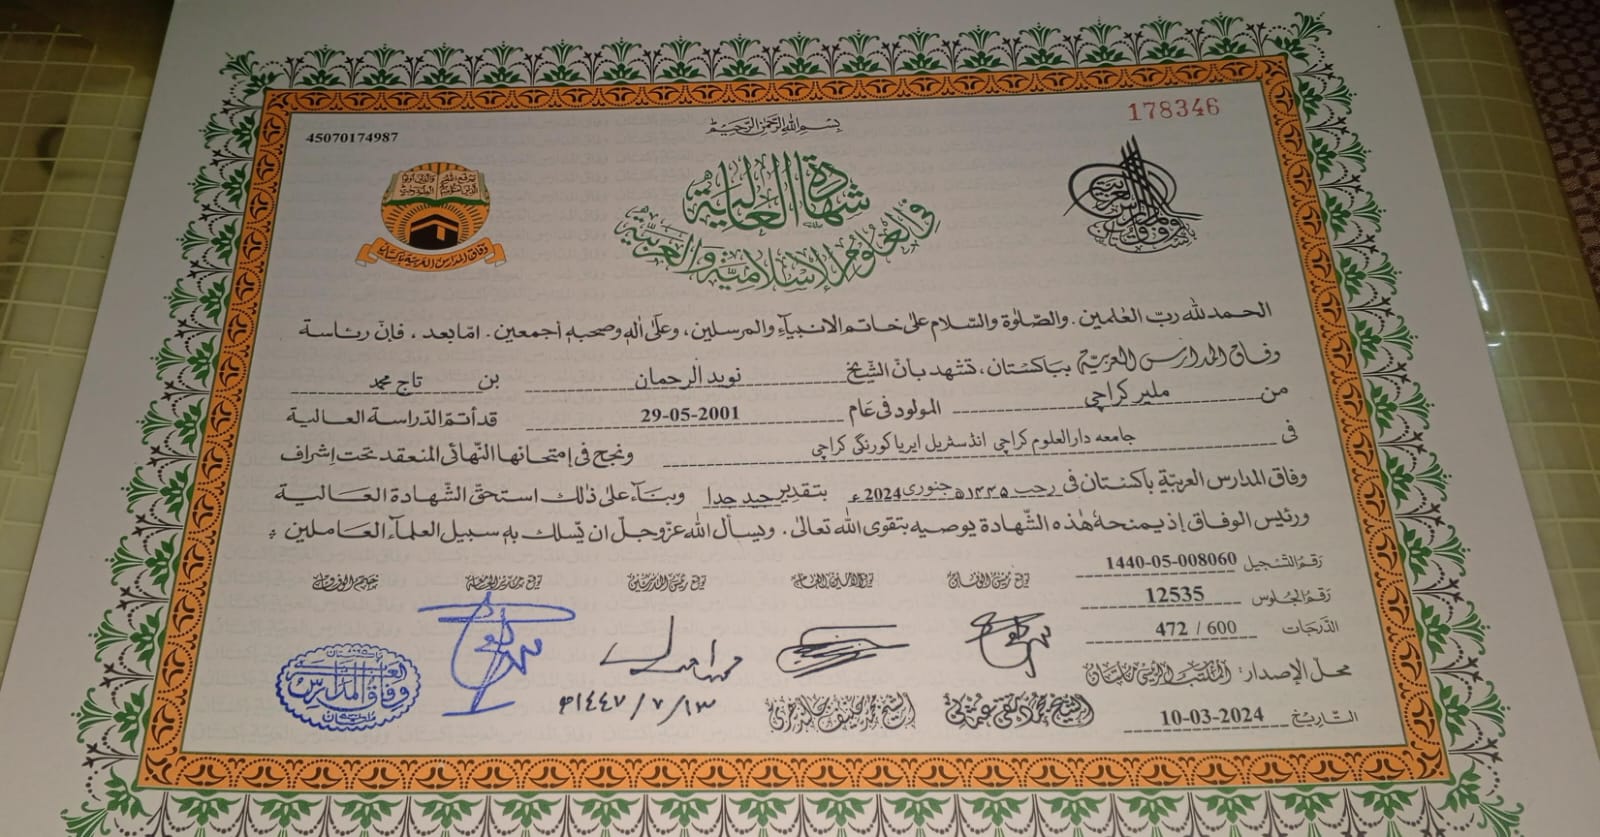 45070174987
بِسْمِ اللهِ الرَّحْمٰنِ الرَّحِيْمِ
178346
شهادة العالية
في العلوم الإسلامية والعربية
وفاق المدارس العربية باكستان
الحمد لله ربّ العٰلمين . والصّلوٰة والسّلام علىٰ خاتم الانبيآءِ والمرسلين ، وعلىٰ اٰله وصحبه أجمعين . امّا بعد ، فإنّ رئاسة
وفاق المدارس العربيّة بباكستان ، تشهد بأنّ الشيخ نوید الرحمان بن تاج محمد
من ملیر کراچی المولود فى عَام 29-05-2001 قد أتمّ الدّراسة العالية
فى جامعه دارالعلوم کراچی انڈسٹریل ایریا کورنگی کراچی ونجح فى إمتحانها النّهائى المنعقد تحت إشراف
وفاق المدارس العربيّة باكستان فى رجب ١٤٤٥ھ جنوری 2024ء بتقدير جيد جدا وبناءً علىٰ ذٰلك استحقّ الشّهادة العالية
ورئيس الوفاق إذ يمنحه هٰذه الشّهادة يوصيه بتقوى الله تعالىٰ . ويسأل الله عزّوجلّ ان يّسلك به سبيل العلمآء العاملين ؛
رقم التّسجيل 1440-05-008060
رقم الجلوس 12535
الدّرجات 472 / 600
محل الإصدار: المكتب الرئيسي ملتان
التّاريخ 10-03-2024
توقيع رئيس الوفاق
توقيع الامين العام
توقيع رئيس المدرسين
توقيع مدير الجامعة
خاتم الوفاق
الشيخ محمد تقي عثماني
الشيخ محمد حنيف جالندهري
١٤٤٧/٧/١٣ھ
وفاق المدارس